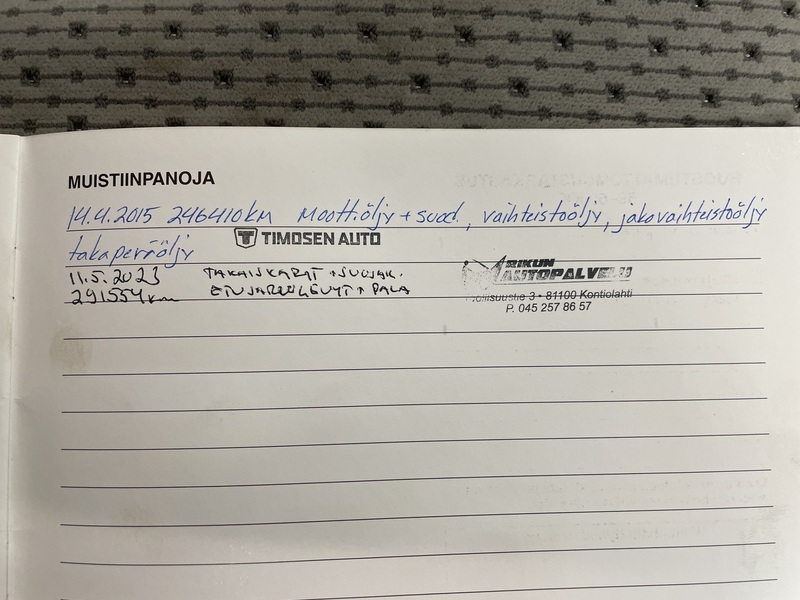 MUISTIINPANOJA
14.4.2015 246410 KM Moott.öljy + suod., vaihteistoöljy, jakovaihteistoöljy
takaperäöljy TIMOSEN AUTO
11.5.2023 TAKAISKARIT + SUOJAK.
291554 km ETUJARRULEVYT + PALA
RIKUN
AUTOPALVELU
Teollisuustie 3 • 81100 Kontiolahti
P. 045 257 86 57